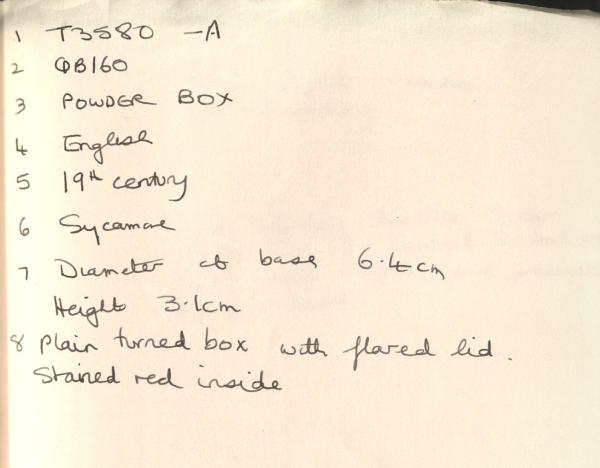 1 T3580 -A
2 QB160
3 POWDER BOX
4 English
5 19th century
6 Sycamore
7 Diameter at base 6.4cm
Height 3.1cm
8 Plain turned box with flared lid.
Stained red inside